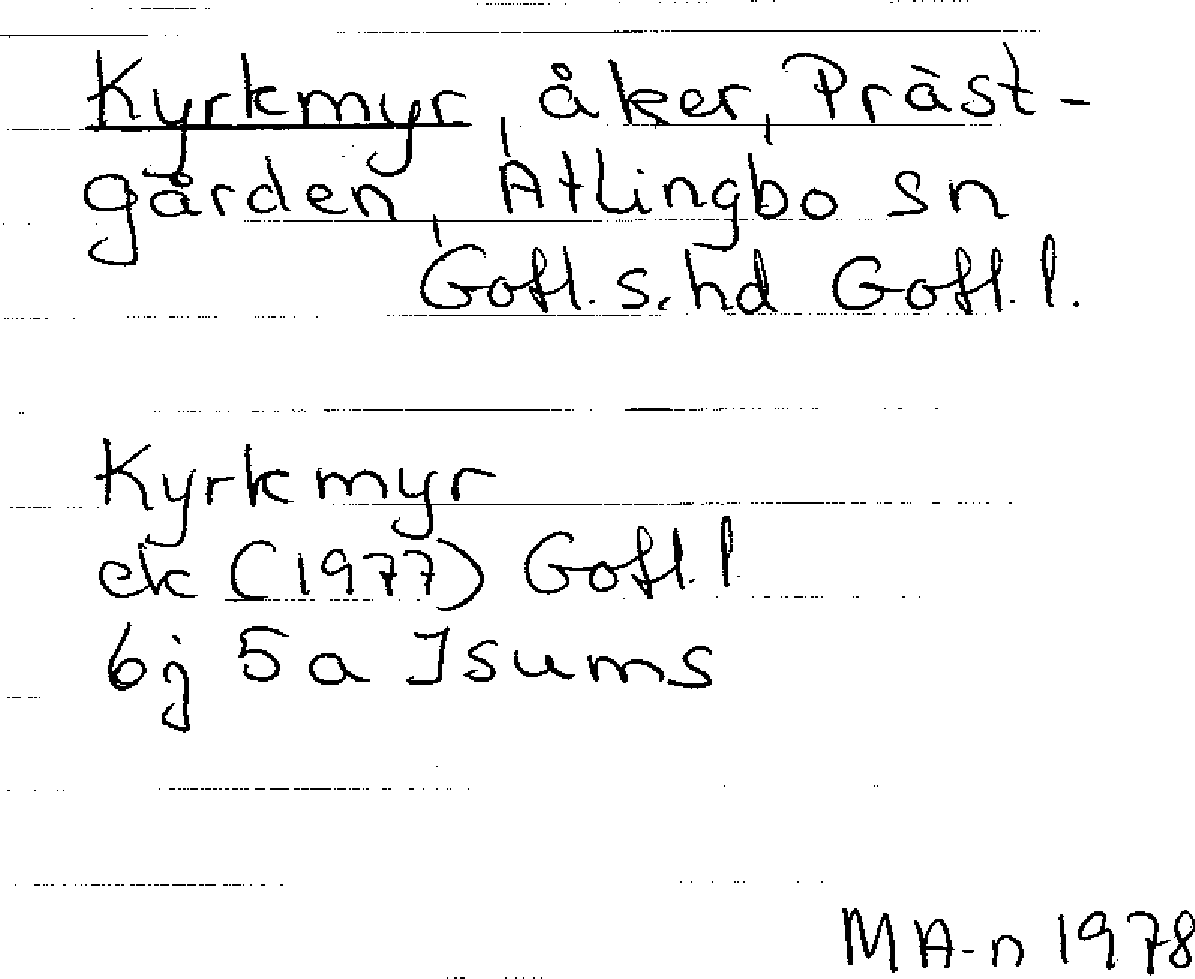 Kyrkmyr, åker, Präst-
gården, Atlingbo sn
Gotl. s. hd Gotl. l.
Kyrkmyr
ek (1977) Gotl. l.
6j 5a Isums
MA-n 1978